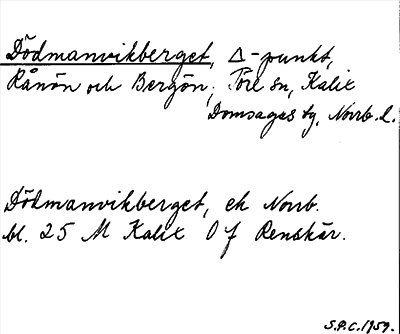 Dödmanvikberget, Δ-punkt,
Rånön och Bergön, Töre sn, Kalix
Domsagas tg, Norrb. l.
Dödmanvikberget, ek Norrb.
bl. 25 M Kalix O f Renskär.
S.P.C. 1959.